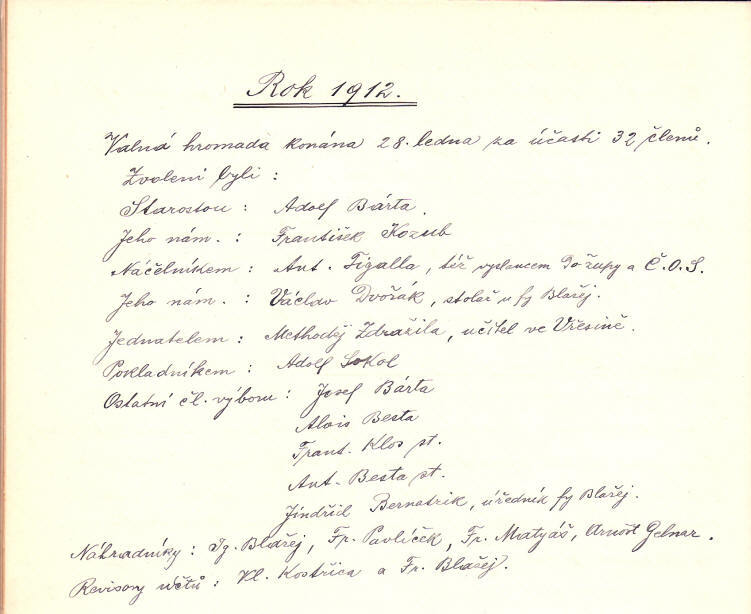 Rok 1912.
Valná hromada konána 28. ledna za účasti 32 členů.
Zvoleni byli :
Starostou : Adolf Bárta.
Jeho nám. : František Kozub
Náčelníkem : Ant. Figalla, též vyslancem do župy a Č.O.S.
Jeho nám. : Václav Dvořák, stolař u fy Blažej.
Jednatelem : Methoděj Zdražila, učitel ve Vřesině.
Pokladníkem : Adolf Sokol
Ostatní čl. výboru : Josef Bárta
Alois Besta
Frant. Klos st.
Ant. Besta st.
Jindřich Bernatzik, úředník fy Blažej.
Náhradníky : Ig. Blažej, Fr. Pavlíček, Fr. Matyáš, Arnošt Gelnar.
Revisory účtů : Kl. Kostřica a Fr. Blažej.